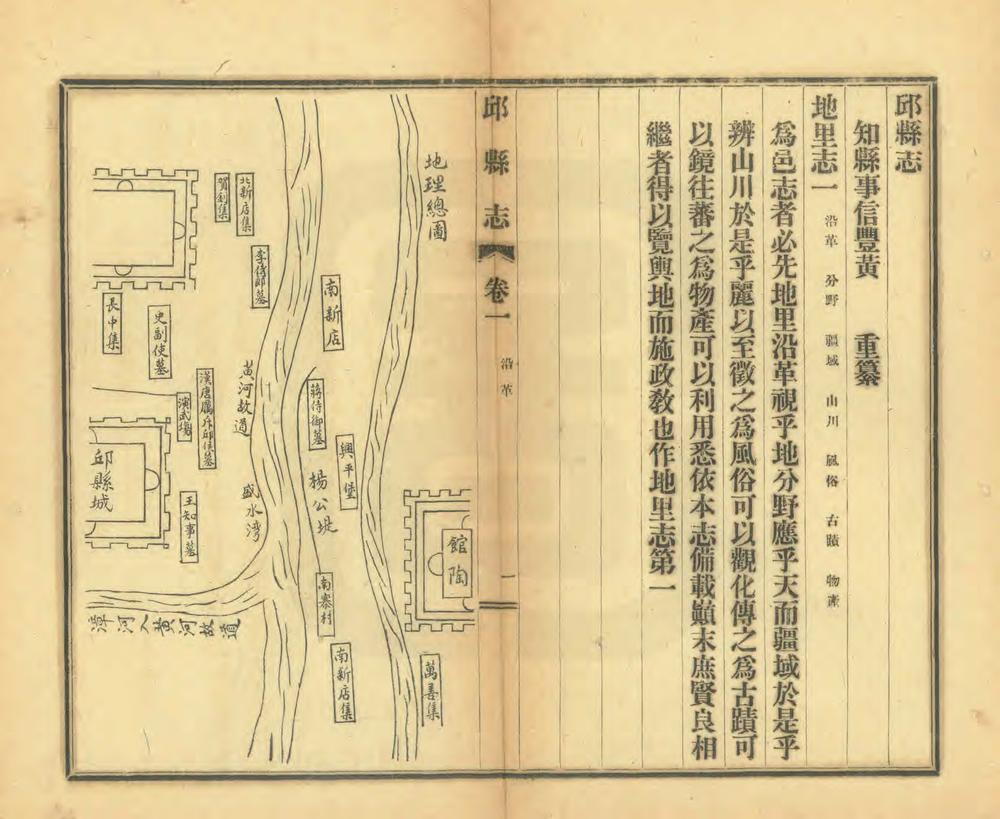 邱縣志
知縣事信豐黃　　重纂
地里志一　沿革　分野　疆域　山川　風俗　古蹟　物產
為邑志者必先地里沿革視乎地分野應乎天而疆域於是乎
辨山川於是乎麗以至徵之為風俗可以觀化傳之為古蹟可
以鏡往蕃之為物產可以利用悉依本志備載顚末庶賢良相
繼者得以覽輿地而施政敎也作地里志第一
邱縣志　卷一　沿革　一
地理總圖
萬善集
館陶
興平堡
南新店
蔣侍御墓
楊公堤
南寨村
南新店集
北新店集
賀釗集
李侍郎墓
黃河故道
盛水湾
漢唐厲斥邱侯墓
演武場
王知事墓
史副使墓
長中集
邱縣城
漳河入黃河故道